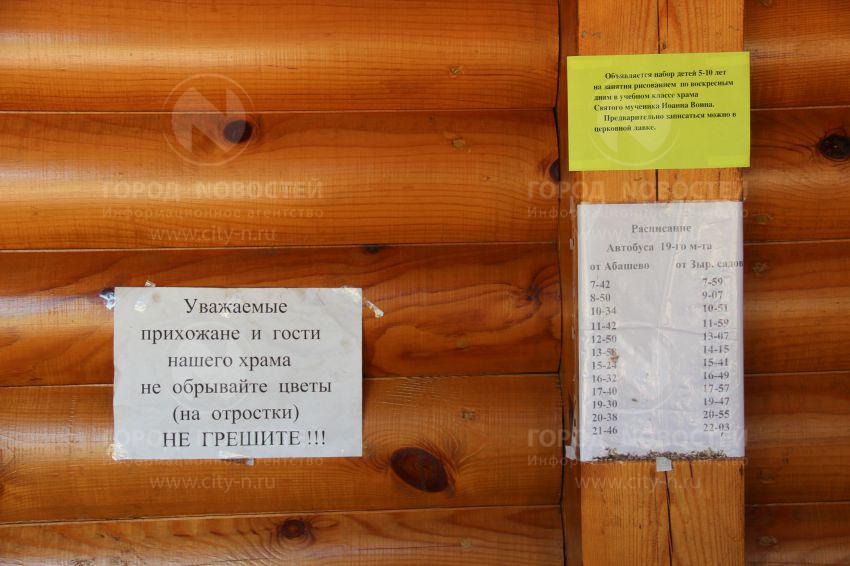 Объявляется набор детей 5-10 лет
на занятия рисованием по воскресным
дням в учебном классе храма
Святого мученика Иоанна Воина.
Предварительно записаться можно в
церковной лавке.
Уважаемые
прихожане и гости
нашего храма
не обрывайте цветы
(на отростки)
НЕ ГРЕШИТЕ !!!
Расписание
Автобуса 19-го м-та
от Абашево от Зыр. садов
7-42 7-59
8-50 9-07
10-34 10-51
11-42 11-59
12-50 13-07
13-58 14-15
15-24 15-41
16-32 16-49
17-40 17-57
19-30 19-47
20-38 20-55
21-46 22-03
ГОРОД NОВОСТЕЙ
Информационное агентство
www.city-n.ru
ГОРОД NОВОСТЕЙ
Информационное агентство
www.city-n.ru